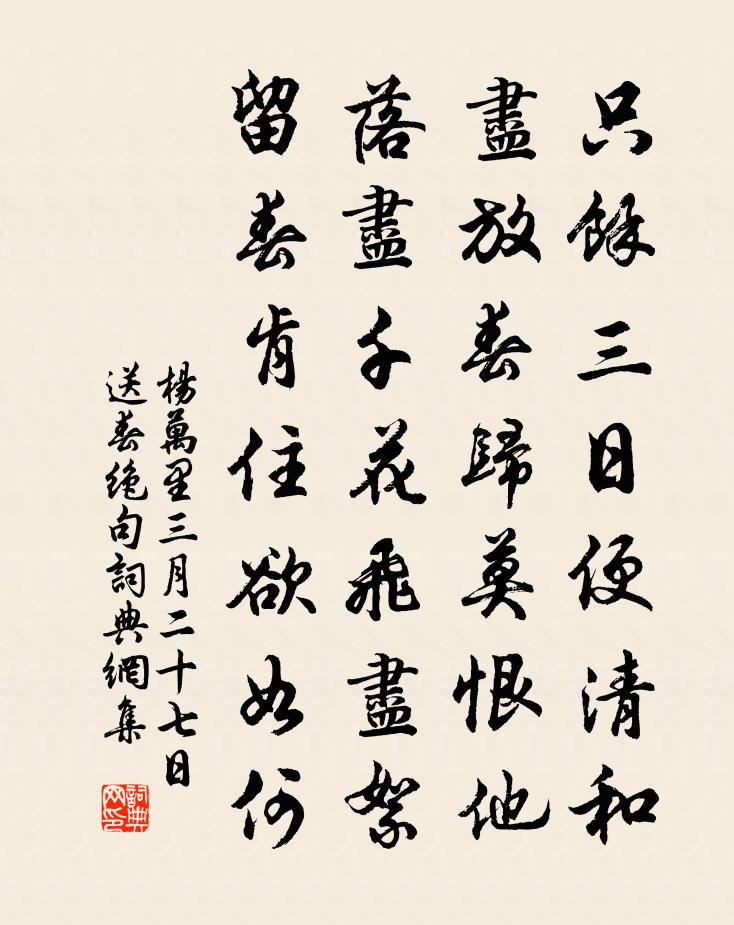 只餘三日便清和
盡放春歸莫恨他
落盡千花飛盡絮
留春肯住欲如何
楊萬里三月二十七日
送春絶句詞典網集
詞典
网印